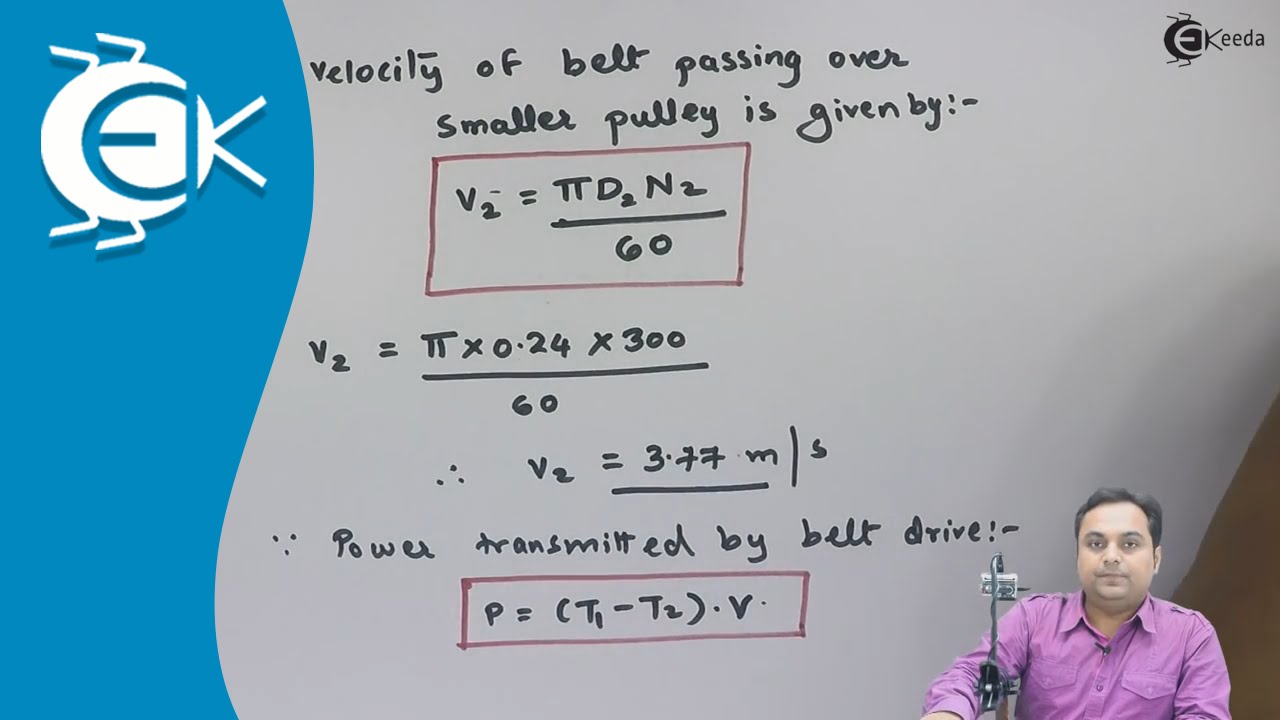 EK
EKeeda
velocity of belt passing over
smaller pulley is given by:-
V₂ = πD₂N₂
60
V₂ = π×0.24×300
60
∴ V₂ = 3.77 m/s
∵ Power transmitted by belt drive:-
P = (T₁-T₂).V.